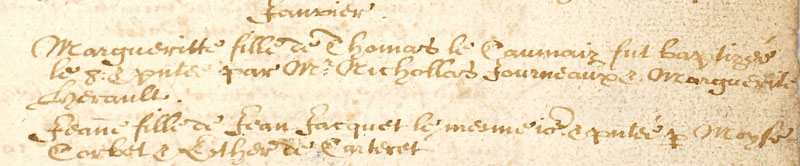 Janvier.
Margueritte fille de Thomas le Caumaiz fut baptizée
le 8: & pntée par Mr. Nichollas Journeaux & Marguerite
Herault.
Jeane fille de Jean Jacquet le mesme jor. & pntée p Moyse
Corbet & Esther de Carteret